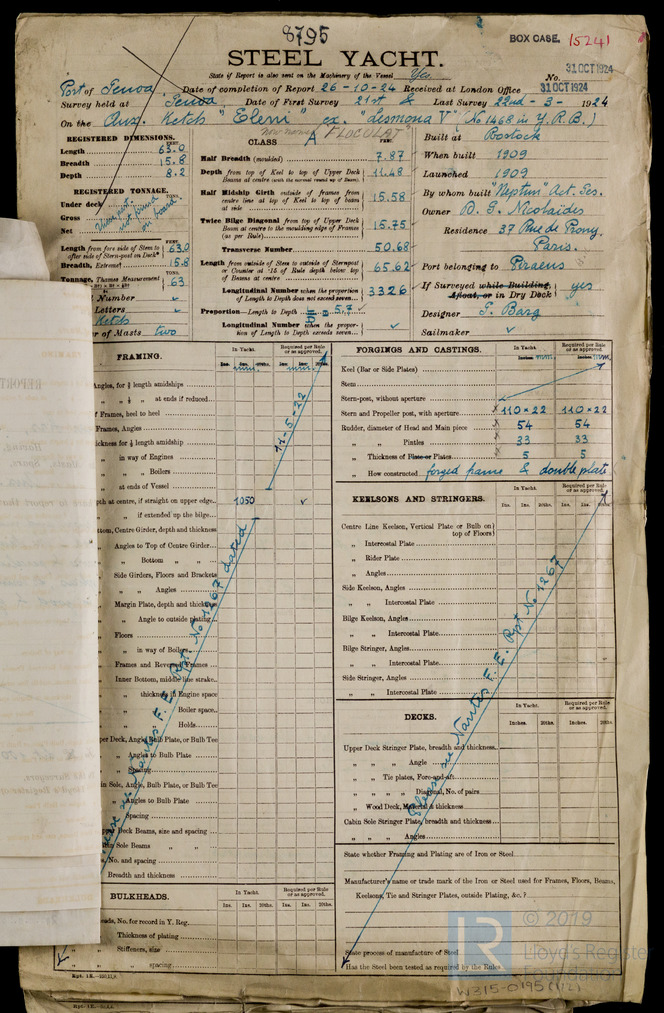 8795
BOX CASE. 15241
STEEL YACHT.
State if Report is also sent on the Machinery of the Vessel Yes.
No.
31 OCT 1924
Port of Genoa Date of completion of Report 26-10-24 Received at London Office 31 OCT 1924
Survey held at Genoa, Date of First Survey 21st & Last Survey 22nd - 3 - 1924
On the Aux. Ketch "Eleni" ex. "Lesmona V" (No 1468 in Y.R.B.)
now named "FLOCULAT"
REGISTERED DIMENSIONS.
FEET.
Length 63.0
Breadth 15.8
Depth 8.2
REGISTERED TONNAGE.
TONS.
Under deck
Gross
Net
not found
on board
Length from fore side of Stem to after side of Stern-post on Deck 63.0
Breadth, Extreme 15.8
TONS.
Tonnage, Thames Measurement 63
Number ✓
Letters ✓
Ketch
r of Masts two
CLASS A
FEET.
Half Breadth (moulded) 7.87
Depth from top of Keel to top of Upper Deck Beams at centre (with the normal round up of Beam) 11.48
Half Midship Girth outside of frames from centre line at top of Keel to top of beam at side 15.58
Twice Bilge Diagonal from top of Upper Deck Beam at centre to the moulding edge of Frames (as per Rule) 15.75
Transverse Number 50.68
Length from outside of Stem to outside of Sternpost or Counter at ·15 of Rule depth below top of Beams at centre 65.62
Longitudinal Number when the proportion of Length to Depth does not exceed seven 3326
Proportion—Length to Depth 5.7
Longitudinal Number when the proportion of Length to Depth exceeds seven ✓
Built at Rostock
When built 1909
Launched 1909
By whom built "Neptun" Act. Ges.
Owner D. G. Nicolaïdes
Residence 37 Rue de Prony,
Paris.
Port belonging to Piraeus
If Surveyed while Building, Afloat, or in Dry Dock yes
Designer G. Barg
Sailmaker ✓
FRAMING.
In Yacht.
Required per Rule or as approved.
Ins. Ins. 20ths. Ins. Ins. 20ths.
mm. mm.
Angles, for ½ length amidships
„ „ ½ „ at ends if reduced
f Frames, heel to heel
Frames, Angles
ickness for ½ length amidship
„ in way of Engines
„ „ „ Boilers
„ at ends of Vessel
pth at centre, if straight on upper edge 1050 ✓
„ if extended up the bilge
ttom, Centre Girder, depth and thickness
Angles to Top of Centre Girder
„ Bottom „ „
Side Girders, Floors and Brackets
„ „ Angles
Margin Plate, depth and thickness
„ Angle to outside plating
Floors
„ in way of Boiler
Frames and Reverse Frames
Inner Bottom, middle line strake
„ thickness in Engine space
„ Boiler space
„ Holds
per Deck, Angle, Bulb Plate, or Bulb Tee
„ Angles to Bulb Plate
„ Spacing
in Sole, Angle, Bulb Plate, or Bulb Tee
„ Angles to Bulb Plate
Spacing
pper Deck Beams, size and spacing
bin Sole Beams „ „
No. and spacing
Breadth and thickness
Please see Nantes F.E. Rpt. No 1267 dated 11-5-22
BULKHEADS.
In Yacht.
Required per Rule or as approved.
Ins. 20ths. Ins. 20ths.
eads, No. for record in Y. Reg.
Thickness of plating
Stiffeners, size
„ spacing
Rpt. 1K.
FORGINGS AND CASTINGS.
In Yacht.
Required per Rule or as approved.
Inches mm. Inches mm.
Keel (Bar or Side Plates)
Stem
Stern-post, without aperture
Stern and Propeller post, with aperture 110 × 22 110 × 22
Rudder, diameter of Head and Main piece 54 54
„ „ Pintles 33 33
„ Thickness of Plate or Plates 5 5
„ How constructed forged frame & double plate
KEELSONS AND STRINGERS.
In Yacht.
Required per Rule or as approved.
Ins. Ins. 20ths. Ins. Ins. 20ths.
Centre Line Keelson, Vertical Plate or Bulb on top of Floors
„ Intercostal Plate
„ Rider Plate
„ Angles
Side Keelson, Angles
„ „ Intercostal Plate
Bilge Keelson, Angles
„ „ Intercostal Plate
Bilge Stringer, Angles
„ „ Intercostal Plate
Side Stringer, Angles
„ „ Intercostal Plate
DECKS.
In Yacht.
Required per Rule or as approved.
Inches. 20ths. Inches. 20ths.
Upper Deck Stringer Plate, breadth and thickness
„ „ „ Angle
„ „ Tie plates, Fore-and-aft
„ „ „ Diagonal, No. of pairs
„ Wood Deck, Material & thickness
Cabin Sole Stringer Plate, breadth and thickness
„ „ „ Angles
Please see Nantes F.E. Rpt No 1267
State whether Framing and Plating are of Iron or Steel
Manufacturer's name or trade mark of the Iron or Steel used for Frames, Floors, Beams,
Keelsons, Tie and Stringer Plates, outside Plating, &c. ?
State process of manufacture of Steel
Has the Steel been tested as required by the Rules
LR
© 2019
Lloyd's Register
Foundation
W315-0195(1/2)